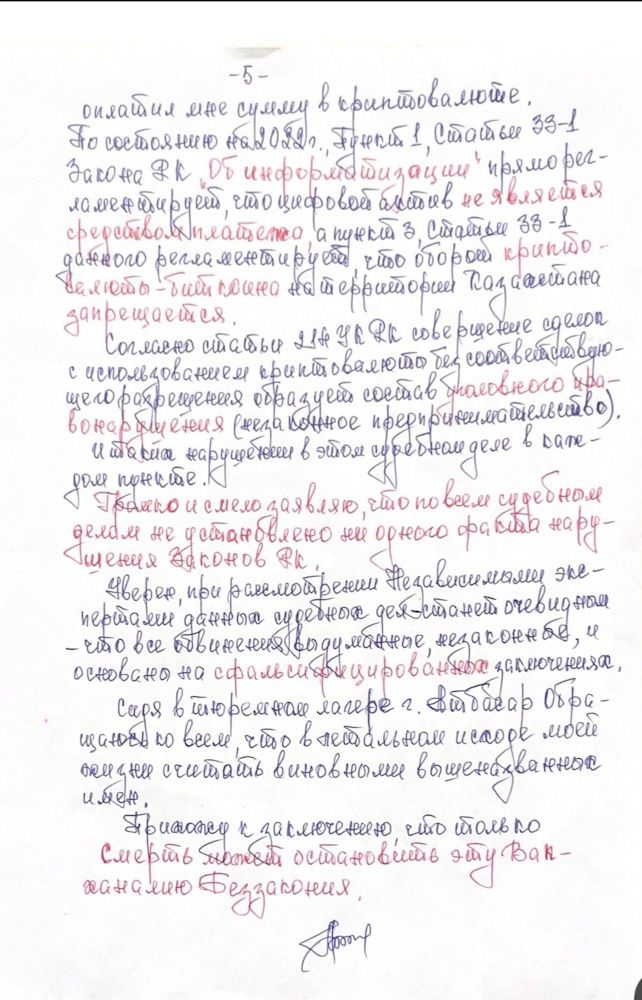 -5-
оплатил мне сумму в криптовалюте.
По состоянию на 2022г., Пункт 1, Статьи 33-1
Закона РК „Об информатизации" прямо рег-
ламентирует, что цифровой актив не является
средством платежа, а пункт 3, Статьи 33-1
данного регламентирует, что оборот крипто-
валюты-биткоина на территории Казахстана
запрещается.
Согласно статьи 214 УК РК совершение сделок
с использованием криптовалюты без соответствую-
щего разрешения образует состав уголовного пра-
вонарушения (незаконное предпринимательство).
И таких нарушении в этом судебном деле в каж-
дом пункте.
Громко и смело заявляю, что по всем судебным
делам не установлено ни одного факта нару-
щения Законов РК.
Уверен, при рассмотрении Независимыми экс-
пертами данных судебных дел-станет очевидным
-что все обвинения выдуманные, незаконные, и
основаны на сфальсифицированных заключениях.
Сидя в тюремном лагере г. Атбасар Обра-
щаюсь ко всем, что в летальном исходе моей
жизни считать виновными вышеназванных
имен.
Прихожу к заключению, что только
Смерть может остановить эту Вак-
ханалию Беззакония.